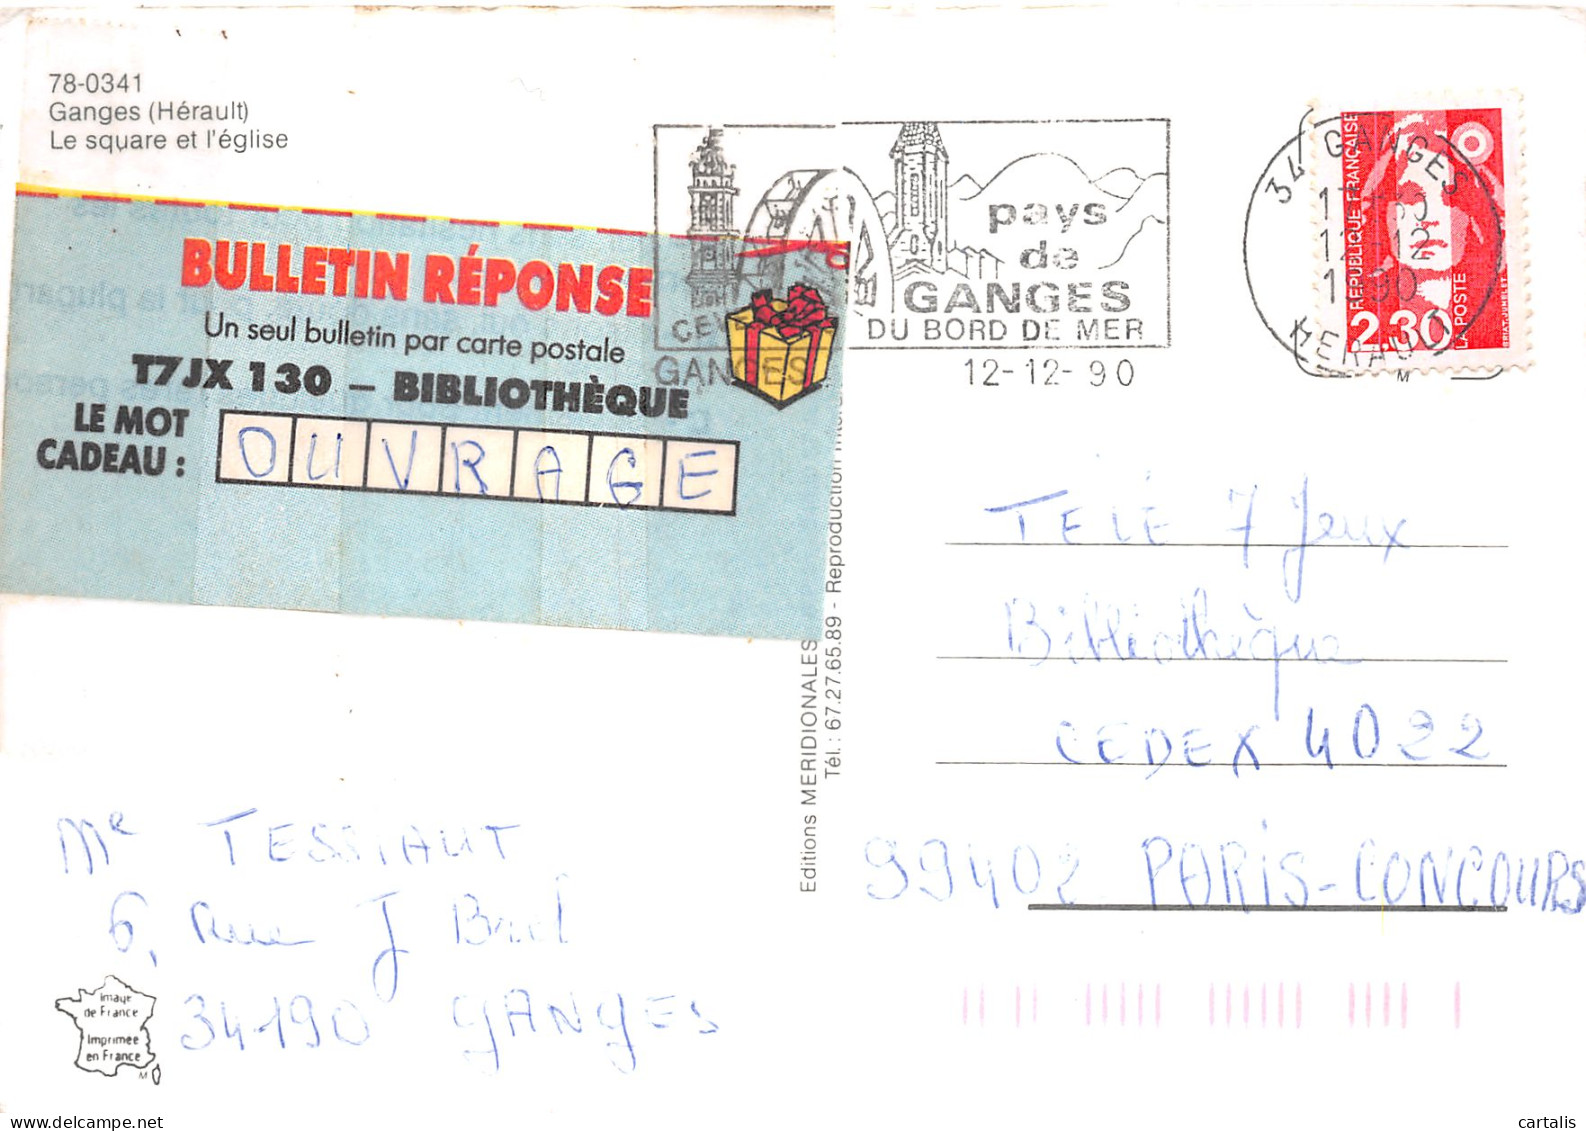 78-0341
Ganges (Hérault)
Le square et l'église
BULLETIN RÉPONSE
Un seul bulletin par carte postale
T7JX 130 – BIBLIOTHÈQUE
LE MOT
CADEAU :
OUVRAGE
pays
de
GANGES
DU BORD DE MER
GANGES
12-12-90
34 GANGES
12-12
HERAULT
REPUBLIQUE FRANÇAISE
2.30
LA POSTE
Editions MERIDIONALES
Tél. : 67.27.65.89 - Reproduction
TELÉ 7 Jeux
Bibliothèque
CEDEX 4022
99402 PARIS-CONCOURS
Me TESSIAUT
6, Rue J Brel
34190 GANGES
Image
de France
Imprimée
en France
M
cartalis